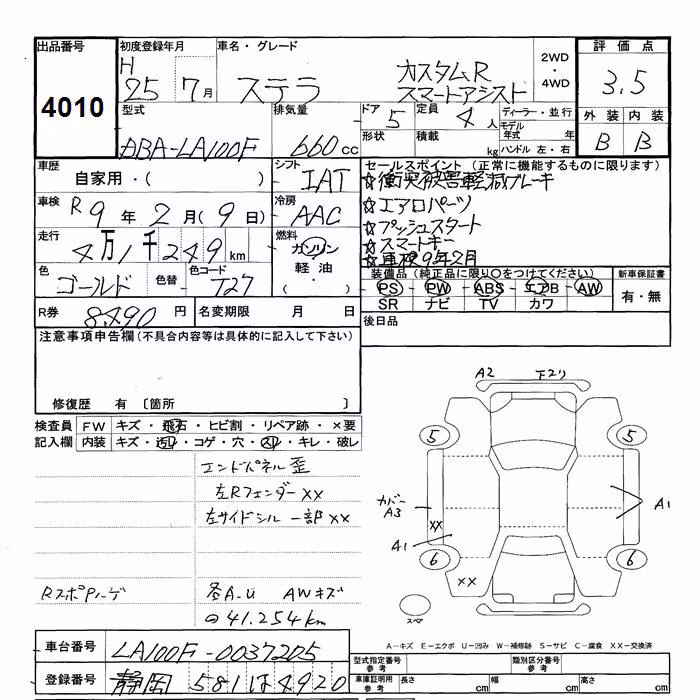 出品番号
4010
初度登録年月
H
25 7月
車名・グレード
ステラ カスタムR
スマートアシスト
2WD
・
4WD
評価点
3.5
外装 内装
B B
型式
DBA-LA100F
排気量
660cc
ドア 5
定員 4人
形状
積載 kg
ディーラー・並行
モデル年式 年
ハンドル 左・右
車歴
自家用・( )
シフト
IAT
車検 R9年2月(9日)
冷房
AAC
走行
4万1千249km
燃料
ガソリン
軽油
( ・ )
色
ゴールド
色替
色コード
T27
R券 8490円
名変期限 月 日
セールスポイント(正常に機能するものに限ります)
☆衝突被害軽減ブレーキ
☆エアロパーツ
☆プッシュスタート
☆スマートキー
☆車検9年2月
装備品(純正品に限り○をつけてください)
PS PW ABS エアB AW
SR ナビ TV カワ
新車保証書
有・無
後日品
注意事項申告欄(不具合内容等は具体的に記入して下さい)
修復歴 有 〔箇所 〕
検査員記入欄
FW キズ・飛石・ヒビ割・リペア跡・×要
内装 キズ・汚レ・コゲ・穴・スレ・キレ・破レ
エンドパネル歪
左Rフェンダーxx
左サイドシル一部xx
各A-U AWキズ
41.254km
A2
5 5
カバー
A3
xx
A1
A1
6 6
xx
スペア
A-キズ E-エクボ U-凹み W-補修跡 S-サビ C-腐食 XX-交換済
車台番号 LA100F-0037205
登録番号 静岡581は4920
型式指定番号
参考
類別区分番号
参考
車庫証明用
参考
長さ cm
幅 cm
高さ cm